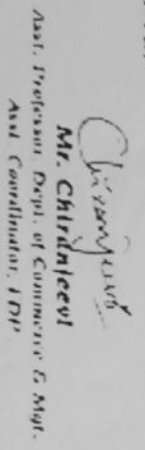 Chiranjeevi
Mr. Chiranjeevi
Asst. Professor, Dept. of Commerce & Mgt.
Asst. Coordinator, IDP